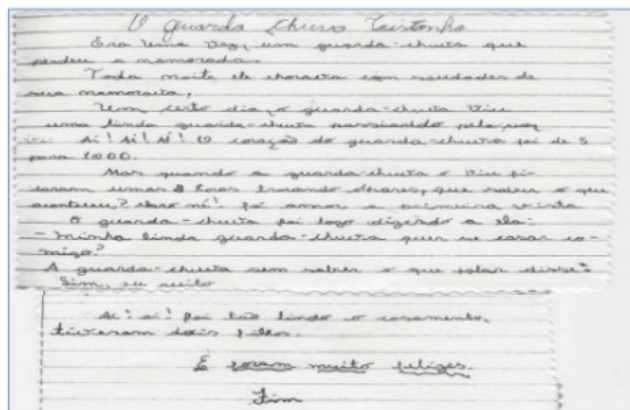 O guarda chuva Tristonho
Era uma vez, um guarda-chuva que
perdeu a namorada.
Toda noite ele chorava com saudades de
sua namorada,
Um certo dia, o guarda-chuva viu
uma linda guarda-chuva passeando pela
Ai! Ai! Ai! O coração do guarda-chuva foi de 5
para 1000.
Mas quando a guarda-chuva o viu fi-
caram umas 8 horas trocando olhares, quer saber o que
aconteceu? Claro né! foi amor a primeira vista
O guarda-chuva foi logo dizendo a ela:
- Minha linda guarda-chuva quer se casar co-
migo?
A guarda-chuva sem saber o que falar disse:
Sim, eu aceito
Ai! ai! foi tão lindo o casamento,
tiveram dois filhos.
E foram muito felizes.
Fim